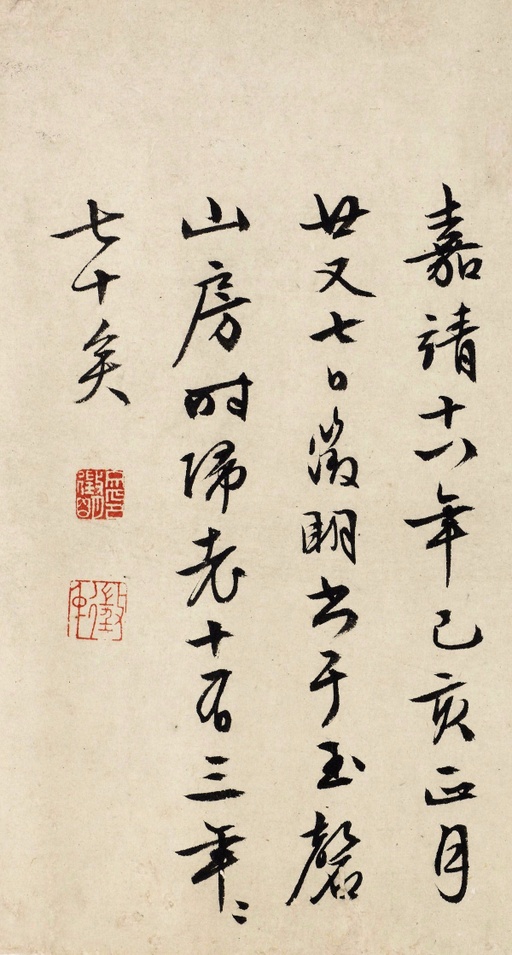 嘉靖十八年己亥正月
廿又七日徵明書于玉磬
山房時歸老十有三年〻
七十矣